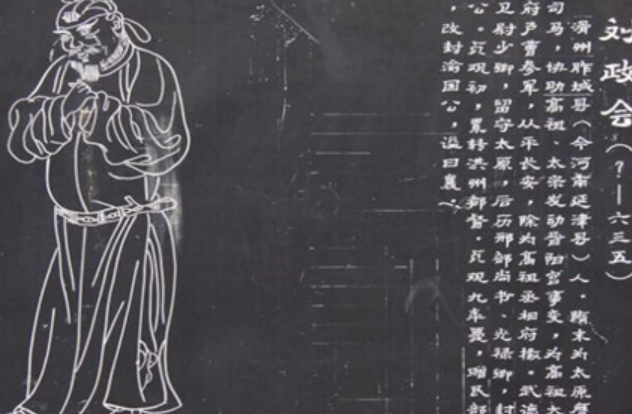 刘政会（？—六三五）
滑州胙城县（今河南延津县）人。隋末为太原
司马，协助高祖、太宗发动晋阳宫事变，为高祖大
府户曹参军，从平长安，除为高祖丞相府掾。武德
卫尉少卿，留守太原，后历邢部尚书、光禄卿，封
公。贞观初，累转洪州都督。贞观九年薨，赠民部
，改封渝国公，谥曰襄。